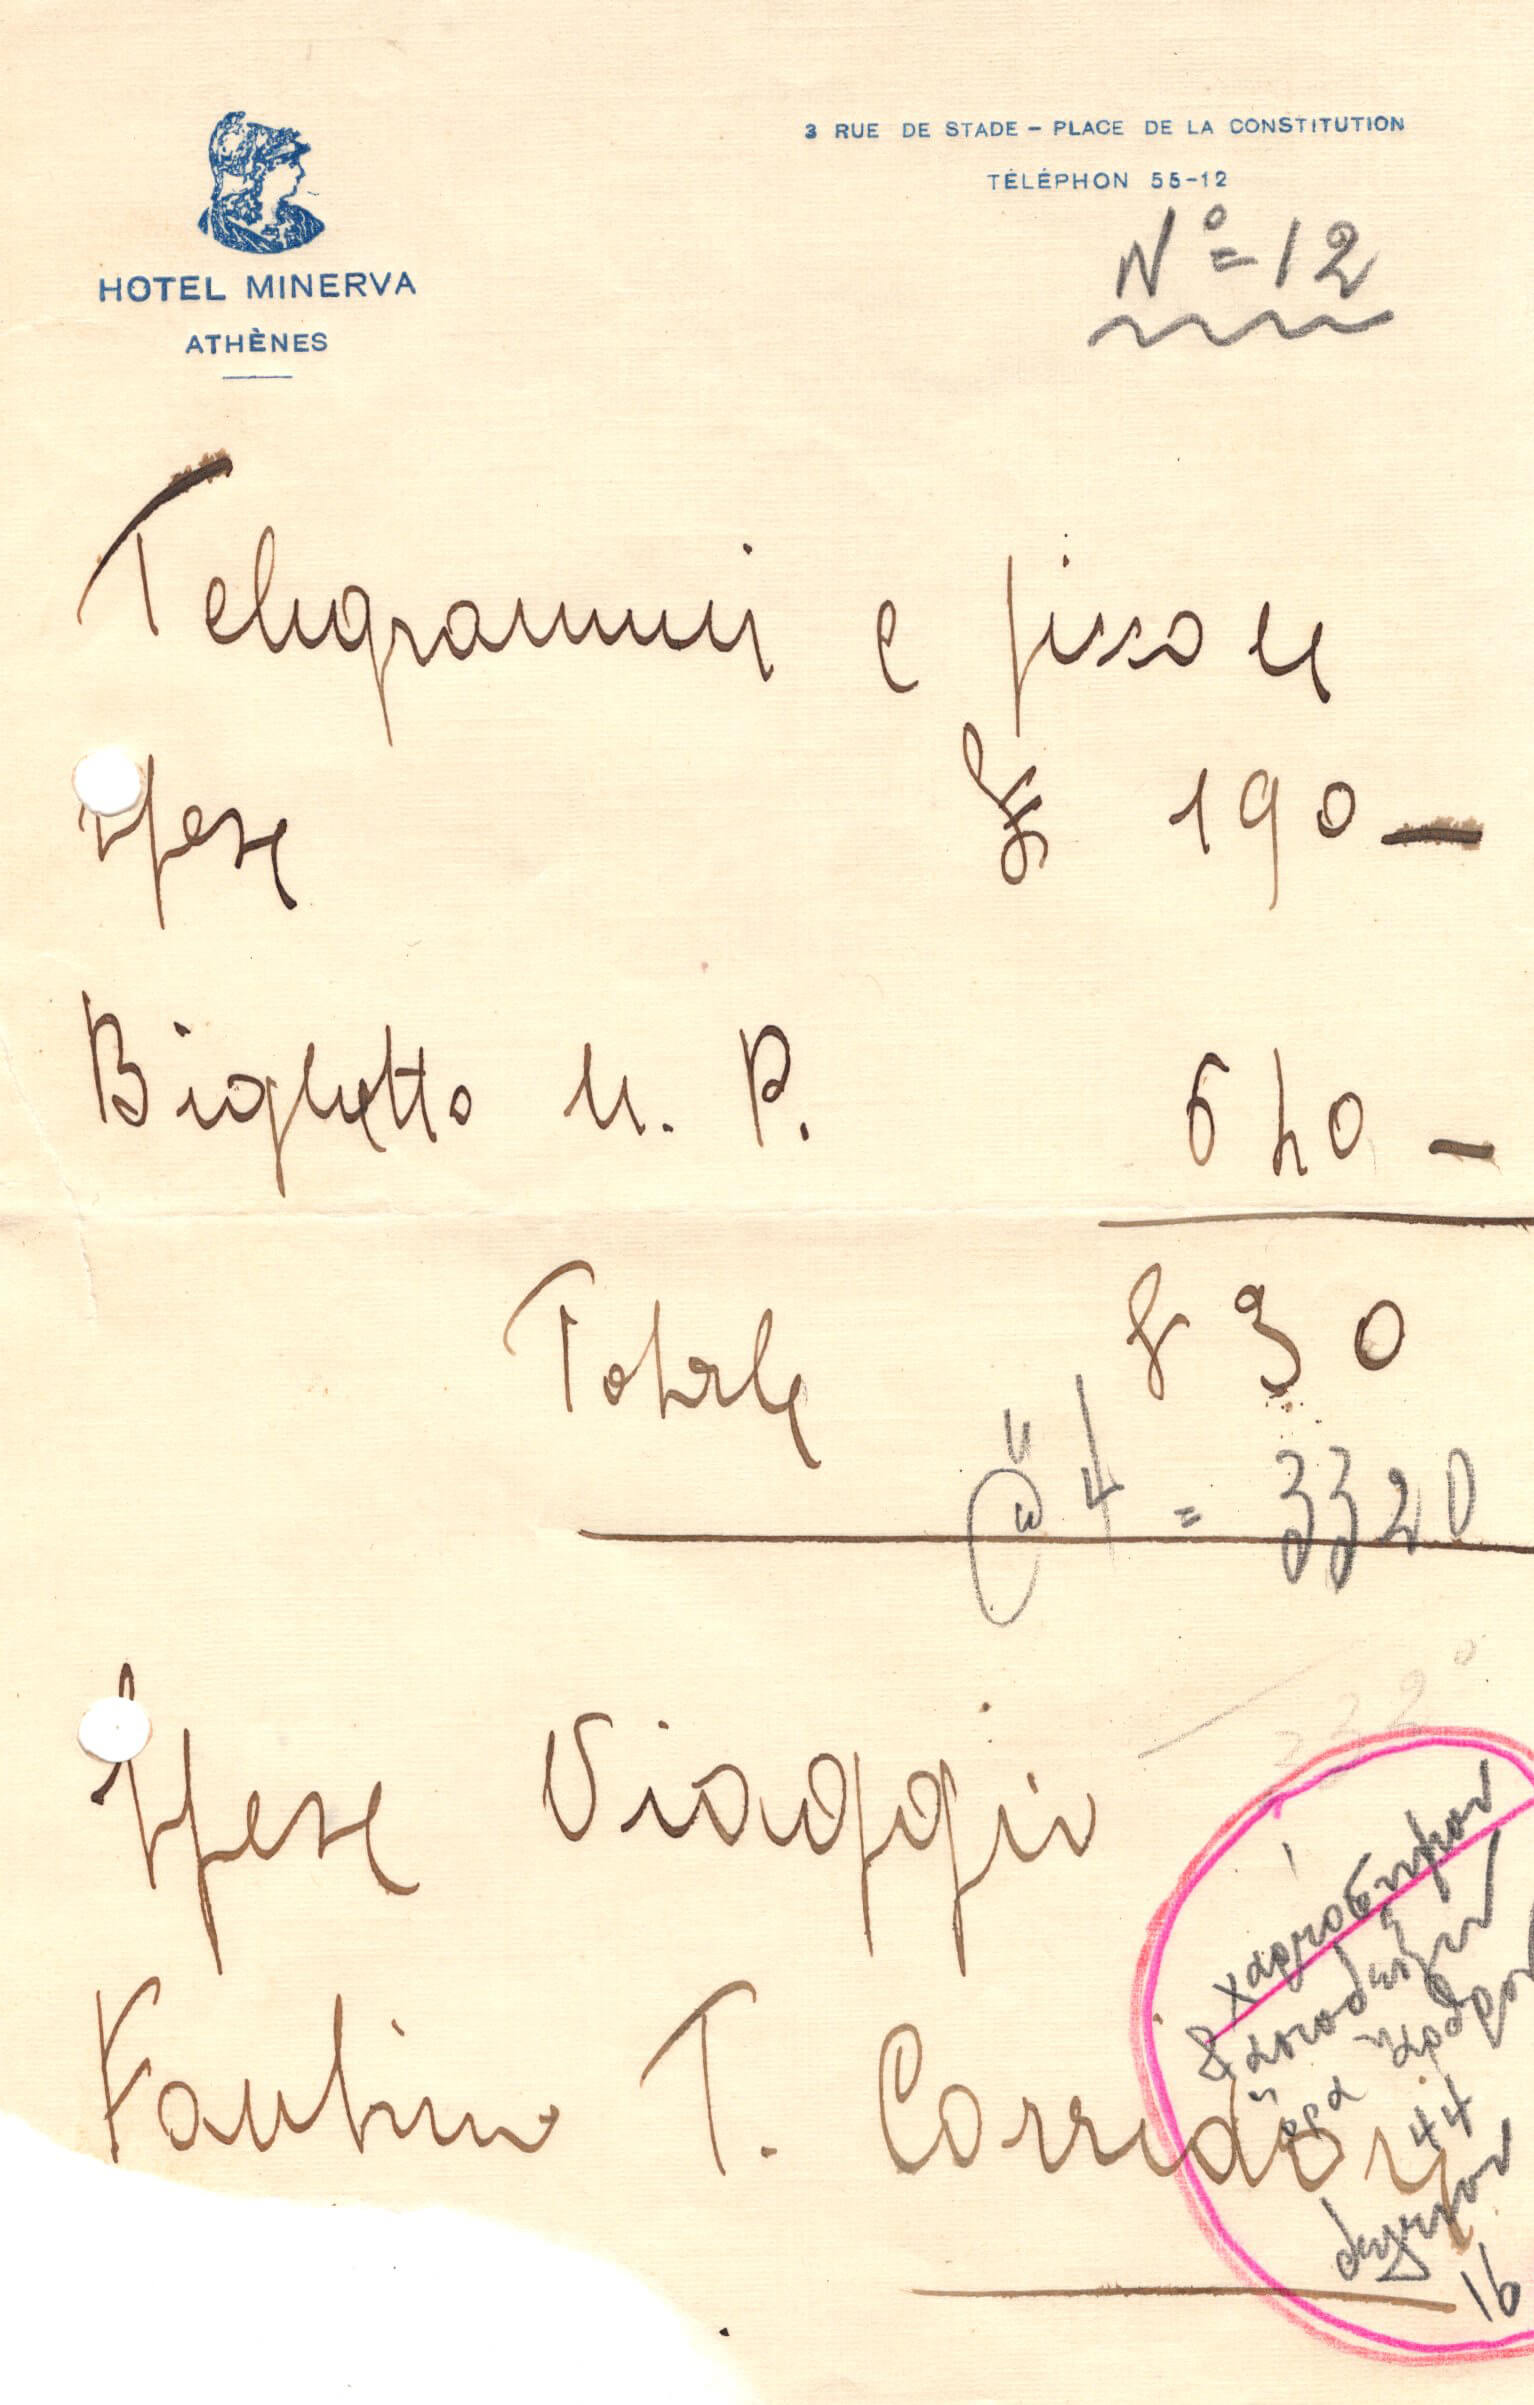 HOTEL MINERVA
ATHÈNES
3 RUE DE STADE – PLACE DE LA CONSTITUTION
TÉLÉPHON 55-12
Nº = 12
Telegrammi e
Spese 190 —
Biglietto N. P. 640 —
Totale 830
4 = 3320
Spese Viaggio
Fantino T. Corridori
χαρτόσημον
44
16